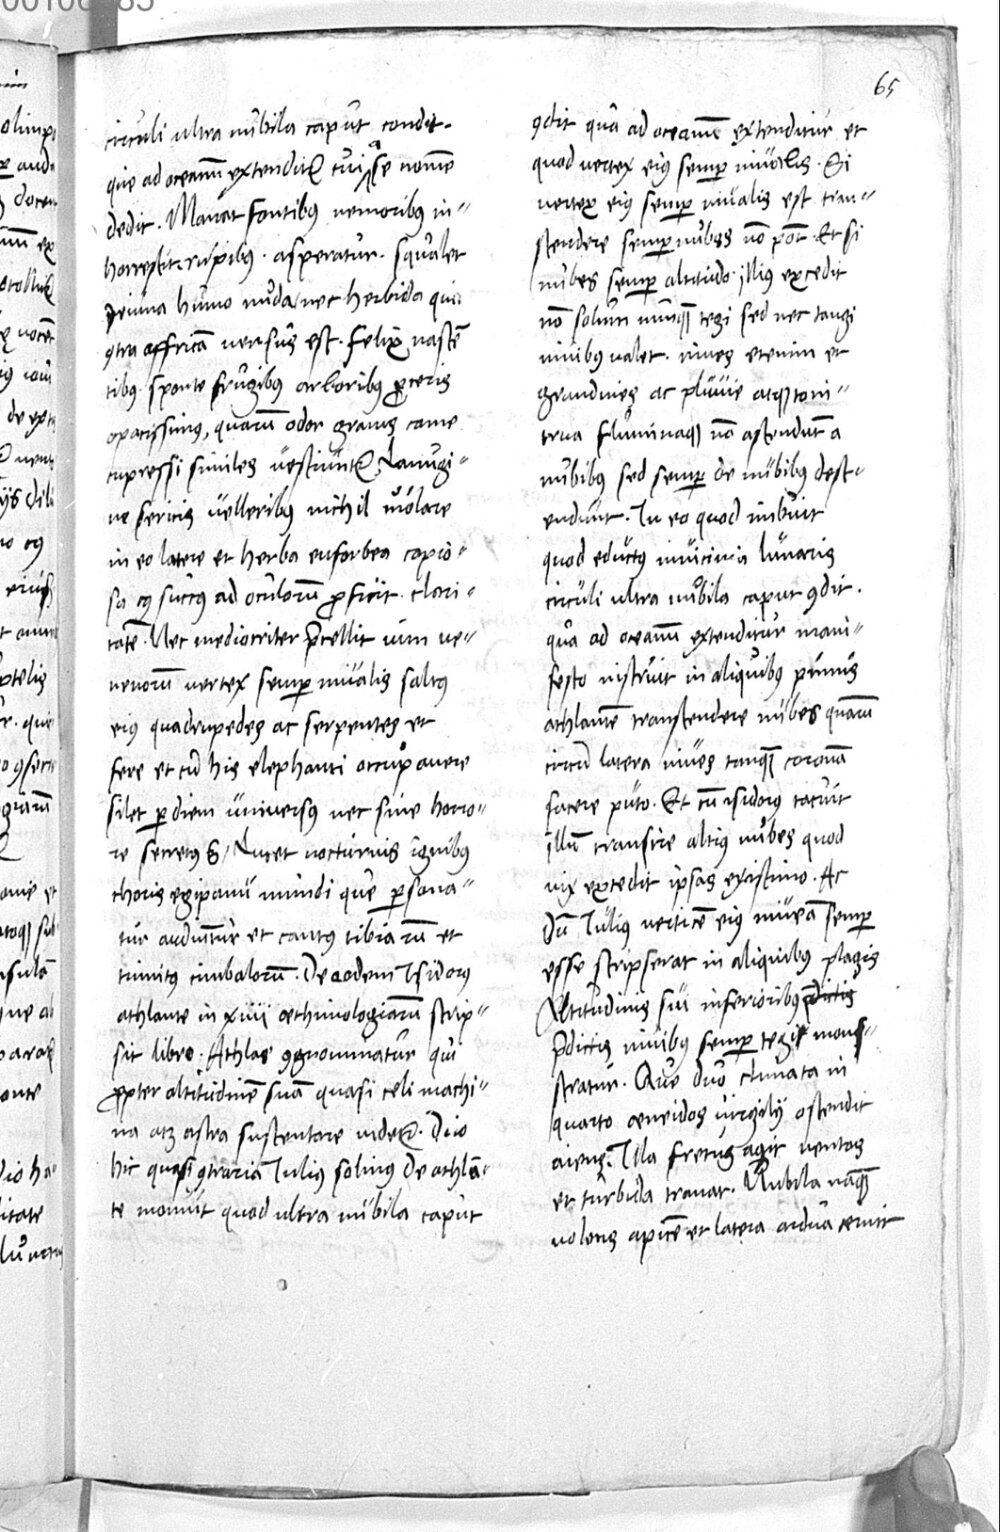 65
circuli ultra nubila caput condit.
que ad oceanum extenditur cui a se nome
dedit. Manat fontibus nemoribus in=
horrescit. rupibus. asperatur. squalet
Jeiuna humo nuda nec herbida qua
9tra affricã uersus est. felix nascẽ
tibus sponte frugibus arboribus proceris
opacissimus, quarum odor gravis come
cupressi similes uestiuntur Lanugi=
ne sericis uelleribus nichil uiolare
in eo latere et herba euforbea copio=
sa cuius succus ad oculorum proficit. clari=
tatẽ. Nec mediocriter precellit uim ue=
nenorum uertex semper niualis saltus
eius quadrupedes ac serpentes et
fere et cũ his elephanti occupauere
silet per diem uniuersus nec sine horro=
re secretus &, Lucet nocturnis ignibus
choris egipanũ undi que persona=
tur audiuntur et cantus tibia rũ et
tinnitus cimbalorum. De eodem Isidorus
athlante in xiiii æthimologiarum scrip=
sit libro. Athlas 9gnominatur qui
propter altitudinẽ suã quasi celi machi=
na atq3 astra sustentare uidetur. Duo
hic quasi 9traria Iulius solinus de athlã=
te monuit quod ultra nubila caput
9dit qua ad oceanum extenditur et
quod uertex eius semper niualis. Si
uertex eius semper niualis est tran=
scendere semper nubes nõ põt. Et si
nubes semper altitudo illius excedit
nõ solum nunquam tegi sed nec tangi
niuibus ualet. niues etenim et
grandines ac pluuie atque toni=
trua fluminaque nõ astendunt a
nubibus sed semper de nubibus dest=
endunt. In eo quod imbuit
quod eductus inuicinia lunaris
circuli ultra nubila caput 9dit.
qua ad oceanum extenditur mani=
festo instruit in aliquibus primus
athlantẽ transcendere nubes quarum
circũ latera niues tanquam coronã
facere puto. Et cũ isidorus tacuit
illũ transire altius nubes quod
uix excedit ipsas existimo. Ac
dũ Iulius uerticẽ eius niueã semper
esse scripserat in aliquibus plagis
Altitudinis sui inferioribus predictis
predictis niuibus semper tegi mons=
stratur. Que duo climata in
quarto æneidos uirgilij ostendit
aiens. Illa fretus agit uentos
et turbida tranat. Nubila namque
uolens apicẽ et latera ardua cernit